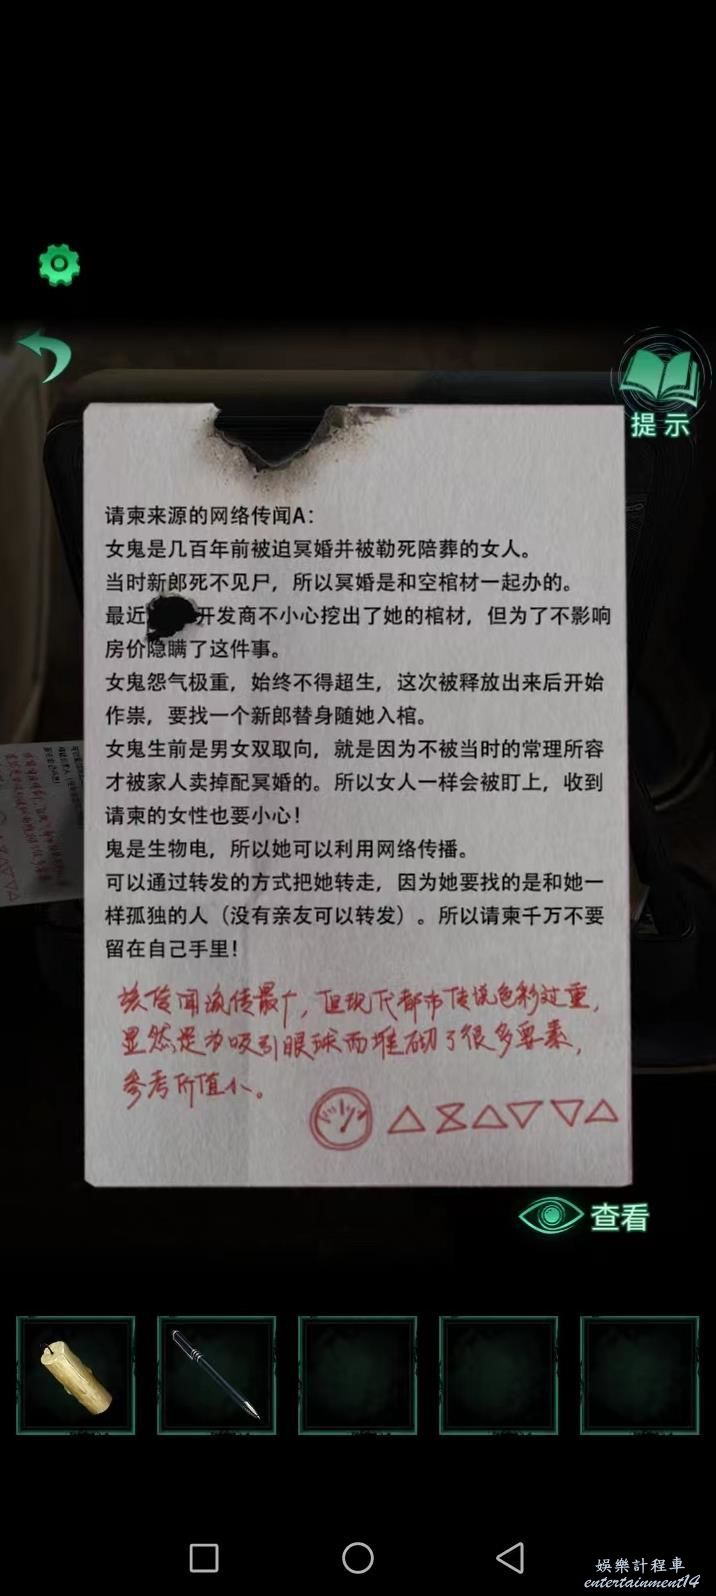 提示
请柬来源的网络传闻A：
女鬼是几百年前被迫冥婚并被勒死陪葬的女人。
当时新郎死不见尸，所以冥婚是和空棺材一起办的。
最近 开发商不小心挖出了她的棺材，但为了不影响
房价隐瞒了这件事。
女鬼怨气极重，始终不得超生，这次被释放出来后开始
作祟，要找一个新郎替身随她入棺。
女鬼生前是男女双取向，就是因为不被当时的常理所容
才被家人卖掉配冥婚的。所以女人一样会被盯上，收到
请柬的女性也要小心！
鬼是生物电，所以她可以利用网络传播。
可以通过转发的方式把她转走，因为她要找的是和她一
样孤独的人（没有亲友可以转发）。所以请柬千万不要
留在自己手里！
该传闻流传最广，但现代都市传说色彩过重，
显然是为吸引眼球而堆砌了很多要素，
参考价值小。
查看
娛樂計程車
entertainment14